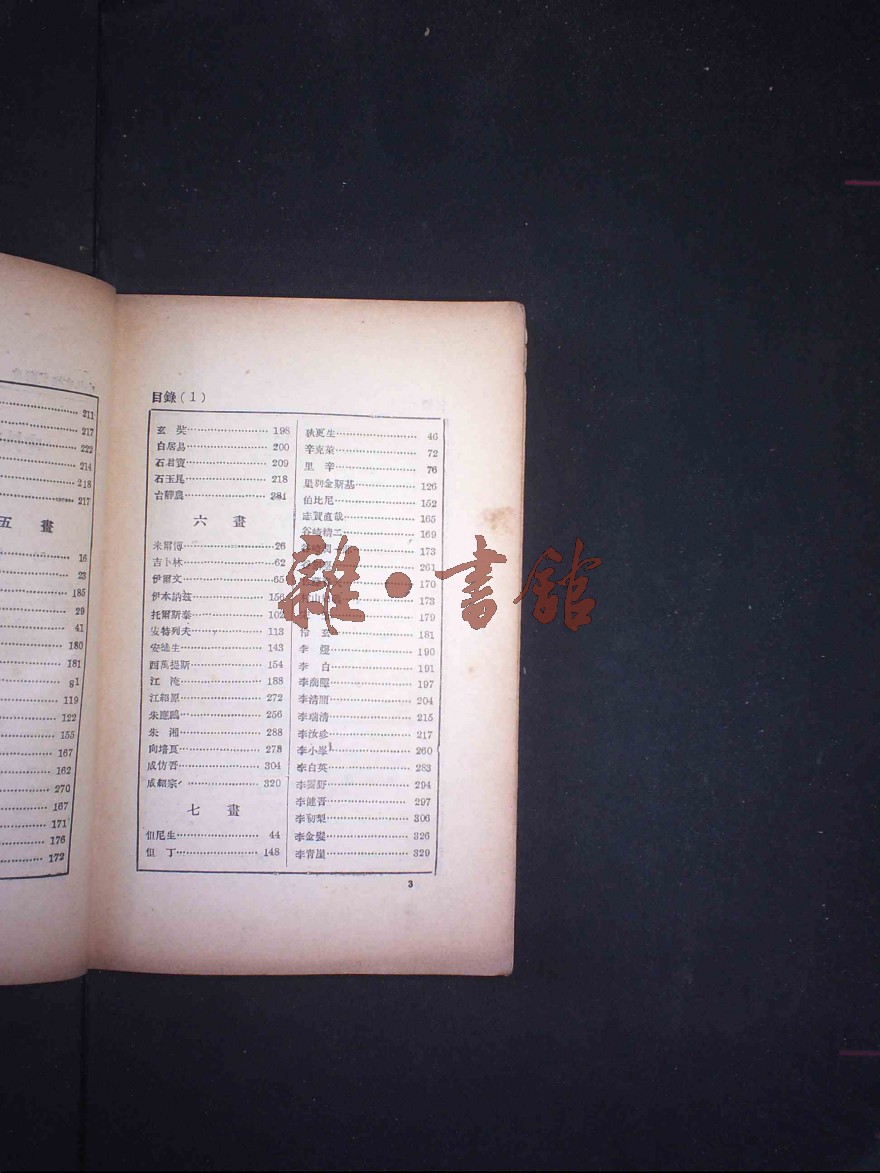 211
217
222
214
218
217
五 畫
16
23
185
29
41
180
181
91
119
122
155
167
162
270
167
171
176
172
目錄（1）
玄 奘 198
白居易 200
石君寶 209
石玉昆 218
台靜農 281
六 畫
米爾博 26
吉卜林 62
伊爾文 65
伊本納茲 156
托爾斯泰 102
安特列夫 113
安徒生 143
西萬提斯 154
江 淹 188
江紹原 272
朱應鵬 256
朱 湘 288
向培良 278
成仿吾 304
成紹宗 320
七 畫
但尼生 44
但 丁 148
狄更生 46
辛克萊 72
里 辛 76
屠列金斯基 126
伯比尼 152
志賀直哉 165
谷崎精二 169
173
261
170
173
179
伶 玄 181
李 延 190
李 白 191
李商隱 197
李清照 204
李瑞清 215
李汝珍 217
李小峯 260
李白英 283
李霽野 294
李健吾 297
李初梨 306
李金髮 326
李青崖 329
3
雜·書館